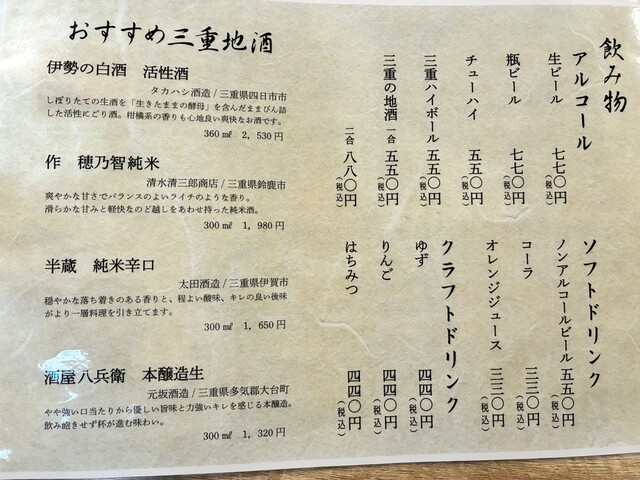 飲み物
アルコール
生ビール 七七〇円(税込)
瓶ビール 七七〇円(税込)
チューハイ 五五〇円(税込)
三重ハイボール 五五〇円(税込)
三重の地酒 一合 五五〇円(税込)
二合 八八〇円(税込)
ソフトドリンク
ノンアルコールビール 五五〇円(税込)
コーラ 三三〇円(税込)
オレンジジュース 三三〇円(税込)
クラフトドリンク
ゆず 四四〇円(税込)
りんご 四四〇円(税込)
はちみつ 四四〇円(税込)
おすすめ三重地酒
伊勢の白酒 活性酒
タカハシ酒造/三重県四日市市
しぼりたての生酒を「生きたままの酵母」を含んだままびん詰
した活性にごり酒。柑橘系の香りも心地良い爽快なお酒です。
360㎖ 2,530円
作 穂乃智純米
清水清三郎商店/三重県鈴鹿市
爽やかな甘さでバランスのよいライチのような香り。
滑らかな甘みと軽快なのど越しをあわせ持った純米酒。
300㎖ 1,980円
半蔵 純米辛口
太田酒造/三重県伊賀市
穏やかな落ち着きのある香りと、程よい酸味、キレの良い後味
がより一層料理を引き立てます。
300㎖ 1,650円
酒屋八兵衛 本醸造生
元坂酒造/三重県多気郡大台町
やや強い口当たりから優しい旨味と力強いキレを感じる本醸造。
飲み飽きせず杯が進む味わい。
300㎖ 1,320円